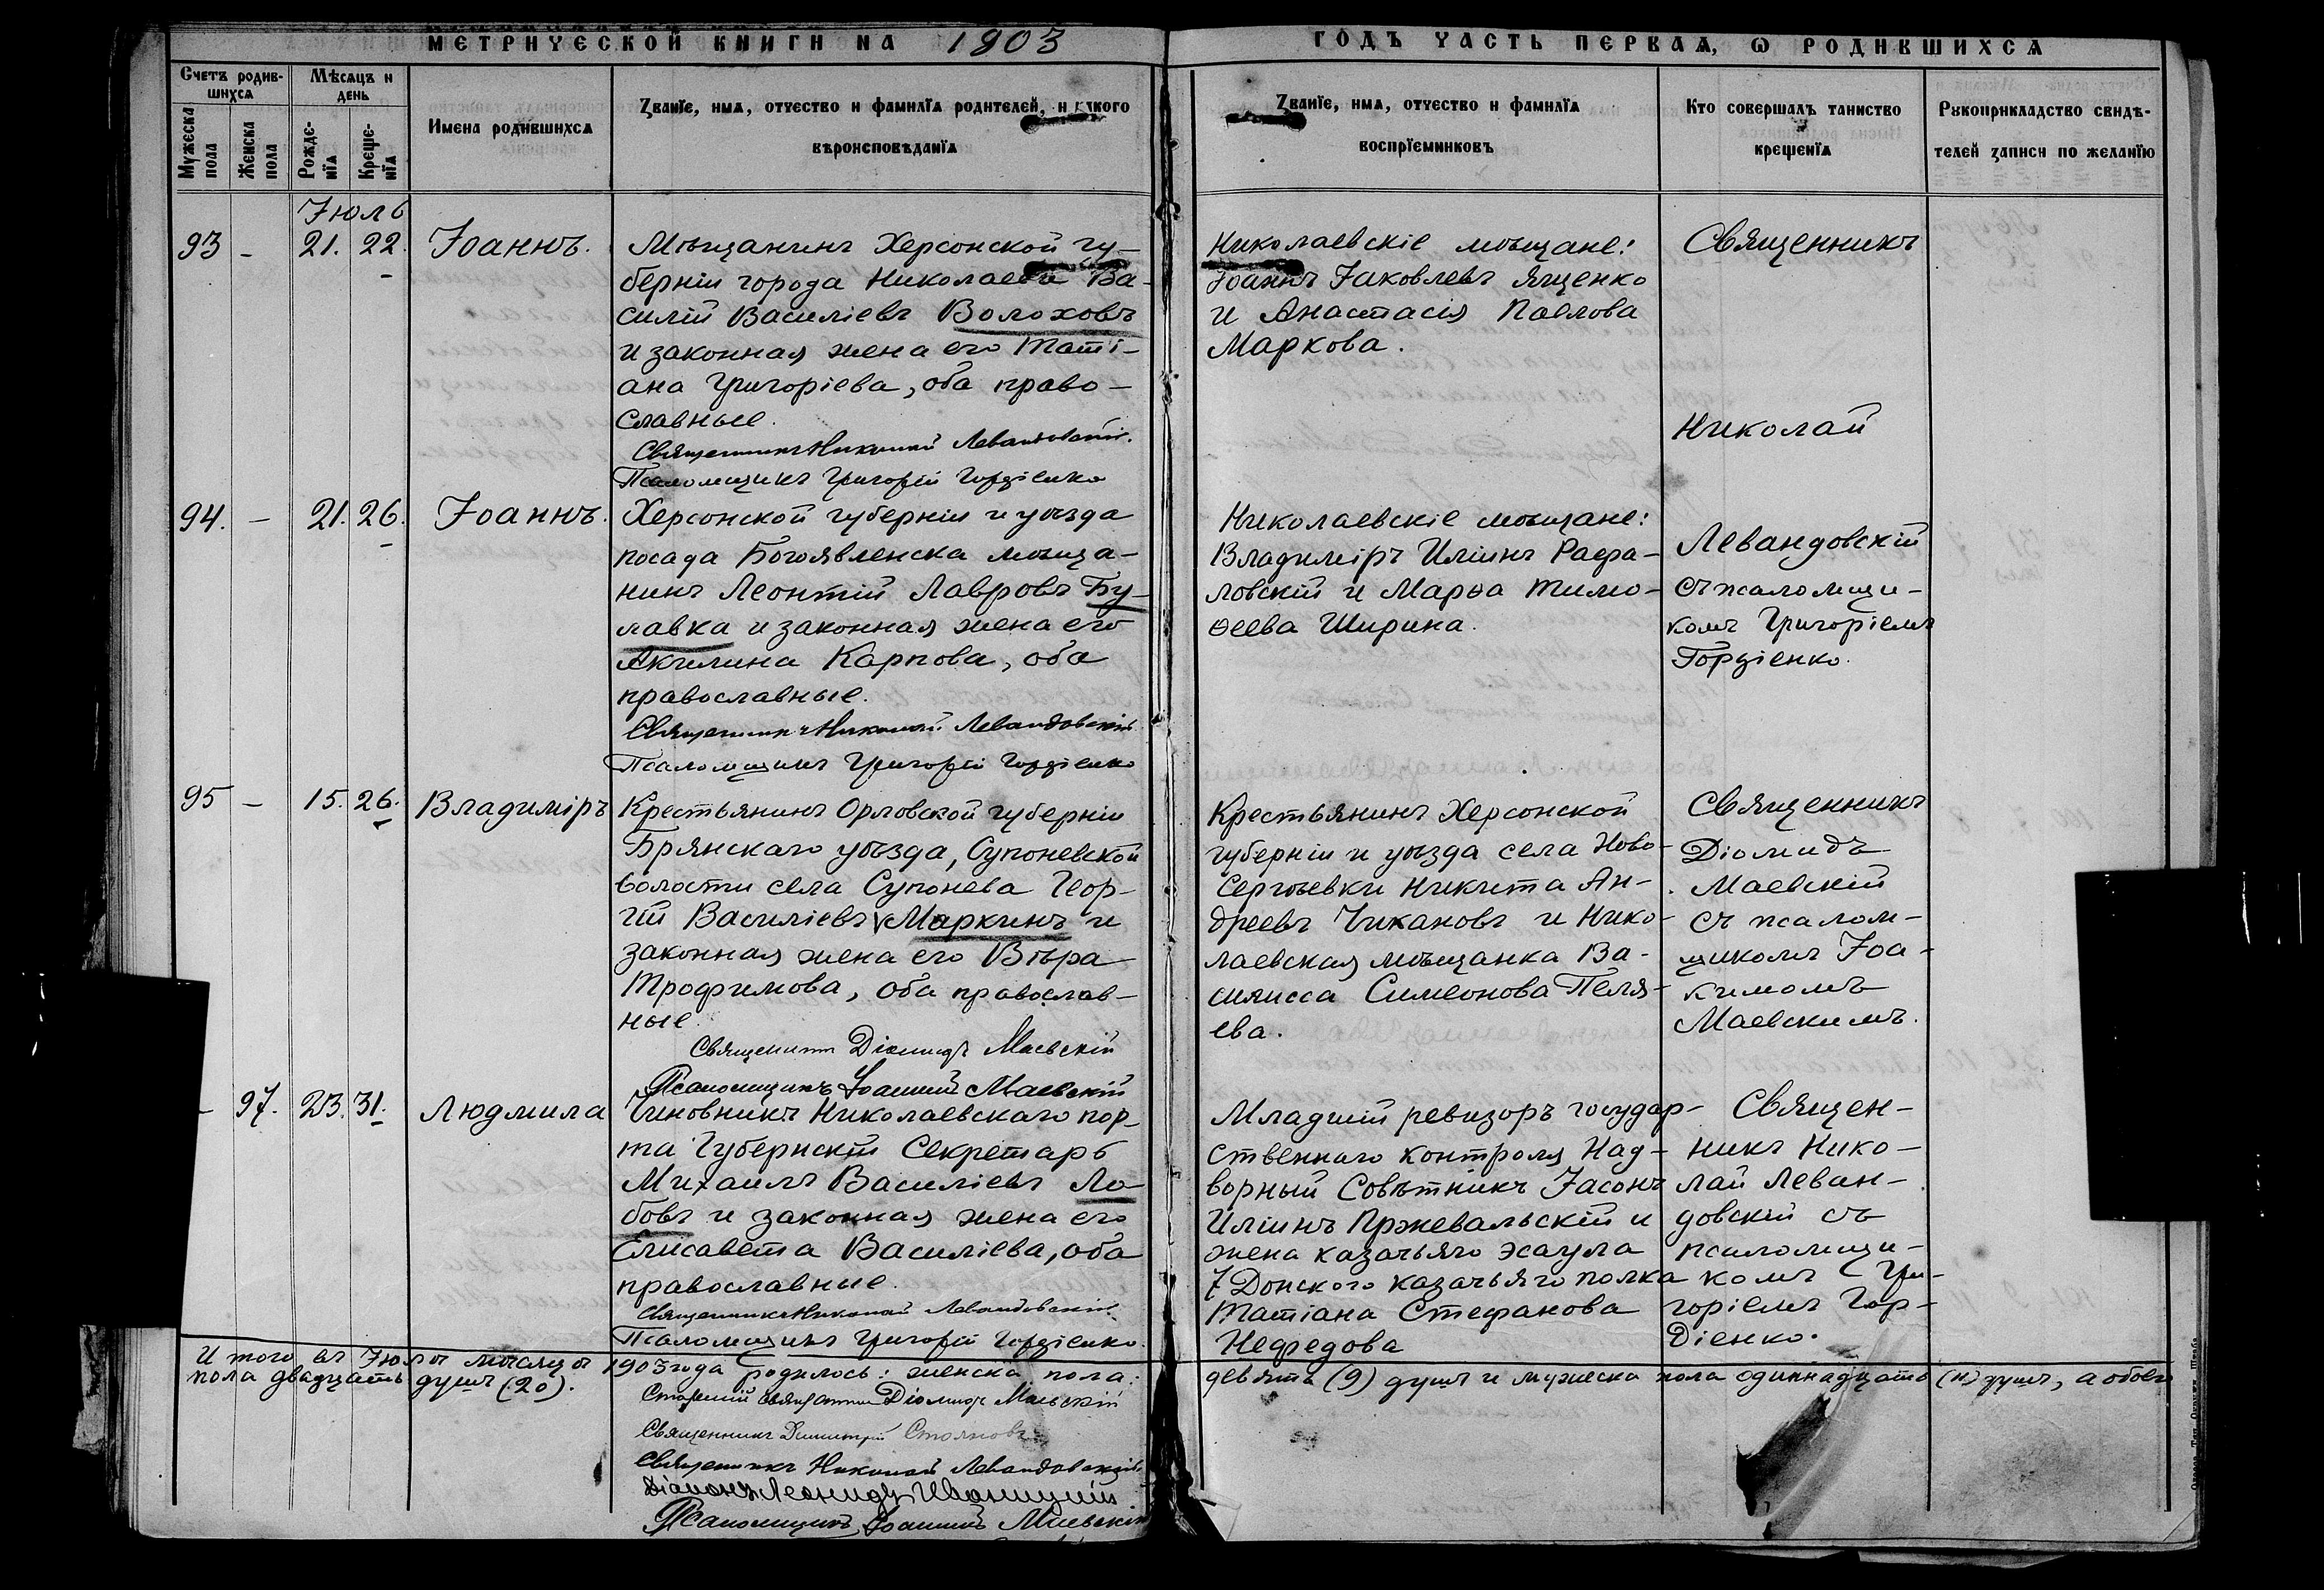 МЕТРИЧЕСКОЙ КНИГИ НА 1903
ГОДЪ ЧАСТЬ ПЕРВАЯ, Ѡ РОДИВШИХСЯ
Счетъ родив-
шихся
Мужеска
пола
Женска
пола
Мѣсяцъ и
день
Рожде-
нїя
Креще-
нїя
Имена родившихся
Званїе, имя, отчество и фамилїя родителей, и какого
вѣроисповѣданїя
Званїе, имя, отчество и фамилїя
воспрїемниковъ
Кто совершалъ таинство
крещенїя
Рукоприкладство свидѣ-
телей записи по желанїю
Іюль
93 - 21. 22. Іоаннъ.
Мѣщанинъ Херсонской гу-
берніи города Николаева Ва-
силій Василіевъ Волоховъ
и законная жена его Таті-
ана Григоріева, оба право-
славные.
Священникъ Николай Левандовскій.
Псаломщикъ Григорій Гордіенко
Николаевскіе мѣщане:
Іоаннъ Іаковлевъ Ященко
и Анастасія Павлова
Маркова.
Священникъ
Николай
Левандовскій
съ псаломщи-
комъ Григоріемъ
Гордіенко.
94. - 21. 26. Іоаннъ.
Херсонской губерніи и уѣзда
посада Богоявленска мѣща-
нинъ Леонтій Лавровъ Бу-
лавка и законная жена его
Акилина Карпова, оба
православные.
Священникъ Николай Левандовскій
Псаломщикъ Григорій Гордіенко
Николаевскіе мѣщане:
Владиміръ Иліинъ Рафа-
ловскій и Марѳа Тимо-
ѳеева Ширина.
95 - 15. 26. Владиміръ
Крестьянинъ Орловской губерніи
Брянскаго уѣзда, Супоневской
волости села Супонева Геор-
гій Василіевъ Маркинъ и
законная жена его Вѣра
Трофимова, оба православ-
ные.
Священникъ Діомидъ Маевскій
Псаломщикъ Іоакимъ Маевскій
Крестьянинъ Херсонской
губерніи и уѣзда села Ново-
Сергѣевки Никита Ан-
дреевъ Чикановъ и Нико-
лаевская мѣщанка Ва-
силисса Симеонова Пеля-
ева.
Священникъ
Діомидъ
Маевскій
съ псалом-
щикомъ Іоа-
кимомъ
Маевскимъ.
- 97. 23. 31. Людмила
Чиновникъ Николаевскаго пор-
та Губернскій Секретарь
Михаилъ Василіевъ Ло-
бовъ и законная жена его
Елисавета Василіева, оба
православные.
Священникъ Николай Левандовскій
Псаломщикъ Григорій Гордіенко.
Младшій ревизоръ государ-
ственнаго контроля Над-
ворный Совѣтникъ Іасонъ
Иліинъ Пржевальскій и
жена казачьяго эсаула
7 Донского казачьяго полка
Татіана Стефанова
Нефедова
Священ-
никъ Нико-
лай Леван-
довскій съ
псаломщи-
комъ Гри-
горіемъ Гор-
діенко.
Итого въ Іюлѣ мѣсяцѣ 1903 года родилось: женска пола: девять (9) душъ и мужеска пола одиннадцать (11) душъ, а обоего
пола двадцать душъ (20).
Старшій священникъ Діомидъ Маевскій
Священникъ Димитрій Стояновъ
Священникъ Николай Левандовскій
Діаконъ Леонидъ
Псаломщикъ Іоакимъ Маевскій